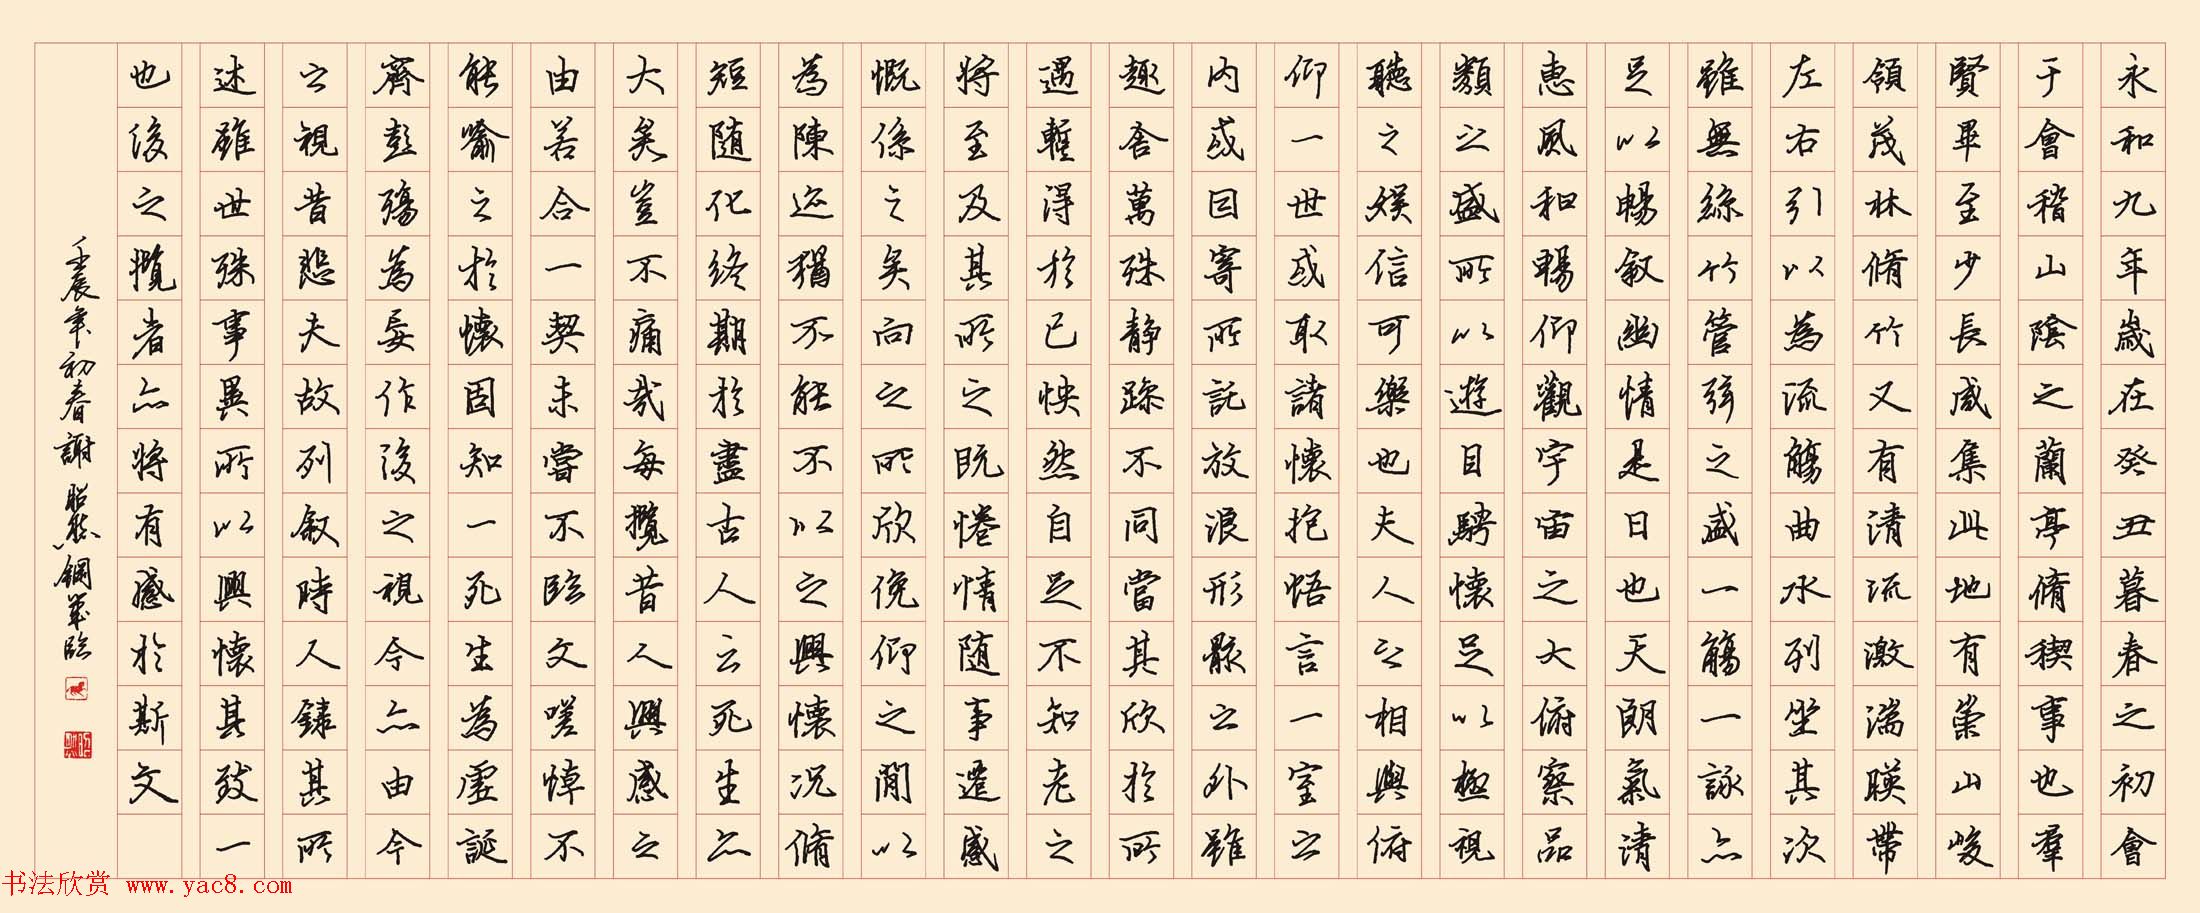 永和九年歲在癸丑暮春之初會
于會稽山陰之蘭亭脩稧事也羣
賢畢至少長咸集此地有崇山峻
領茂林脩竹又有清流激湍暎帶
左右引以為流觴曲水列坐其次
雖無絲竹管弦之盛一觴一詠亦
足以暢敘幽情是日也天朗氣清
惠風和暢仰觀宇宙之大俯察品
類之盛所以遊目騁懷足以極視
聽之娛信可樂也夫人之相與俯
仰一世或取諸懷抱悟言一室之
內或因寄所託放浪形骸之外雖
趣舍萬殊静躁不同當其欣於所
遇暫得於己怏然自足不知老之
將至及其所之既惓情隨事遷感
慨係之矣向之所欣俛仰之閒以
為陳迹猶不能不以之興懷況脩
短隨化終期於盡古人云死生亦
大矣豈不痛哉每攬昔人興感之
由若合一契未嘗不臨文嗟悼不
能喻之於懷固知一死生為虛誕
齊彭殤為妄作後之視今亦由今
之視昔悲夫故列敘時人錄其所
述雖世殊事異所以興懷其致一
也後之攬者亦將有感於斯文
壬辰年初春謝昭然鋼筆臨
书法欣赏 www.yac8.com